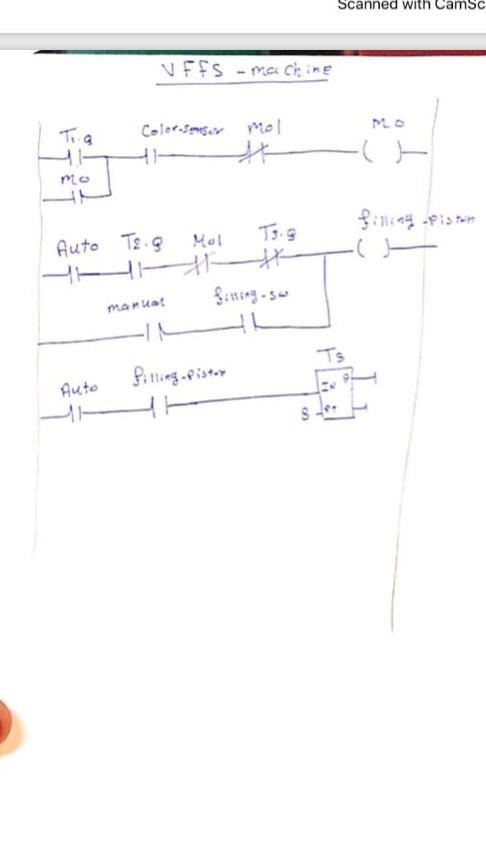 Scanned with CamSc
VFFS - machine
T1.q Color-sensor M01 M0
M0
filling-piston
Auto T2.q M01 T3.q
manual filling-sw
T3
Auto filling-piston
IN q
8 PT